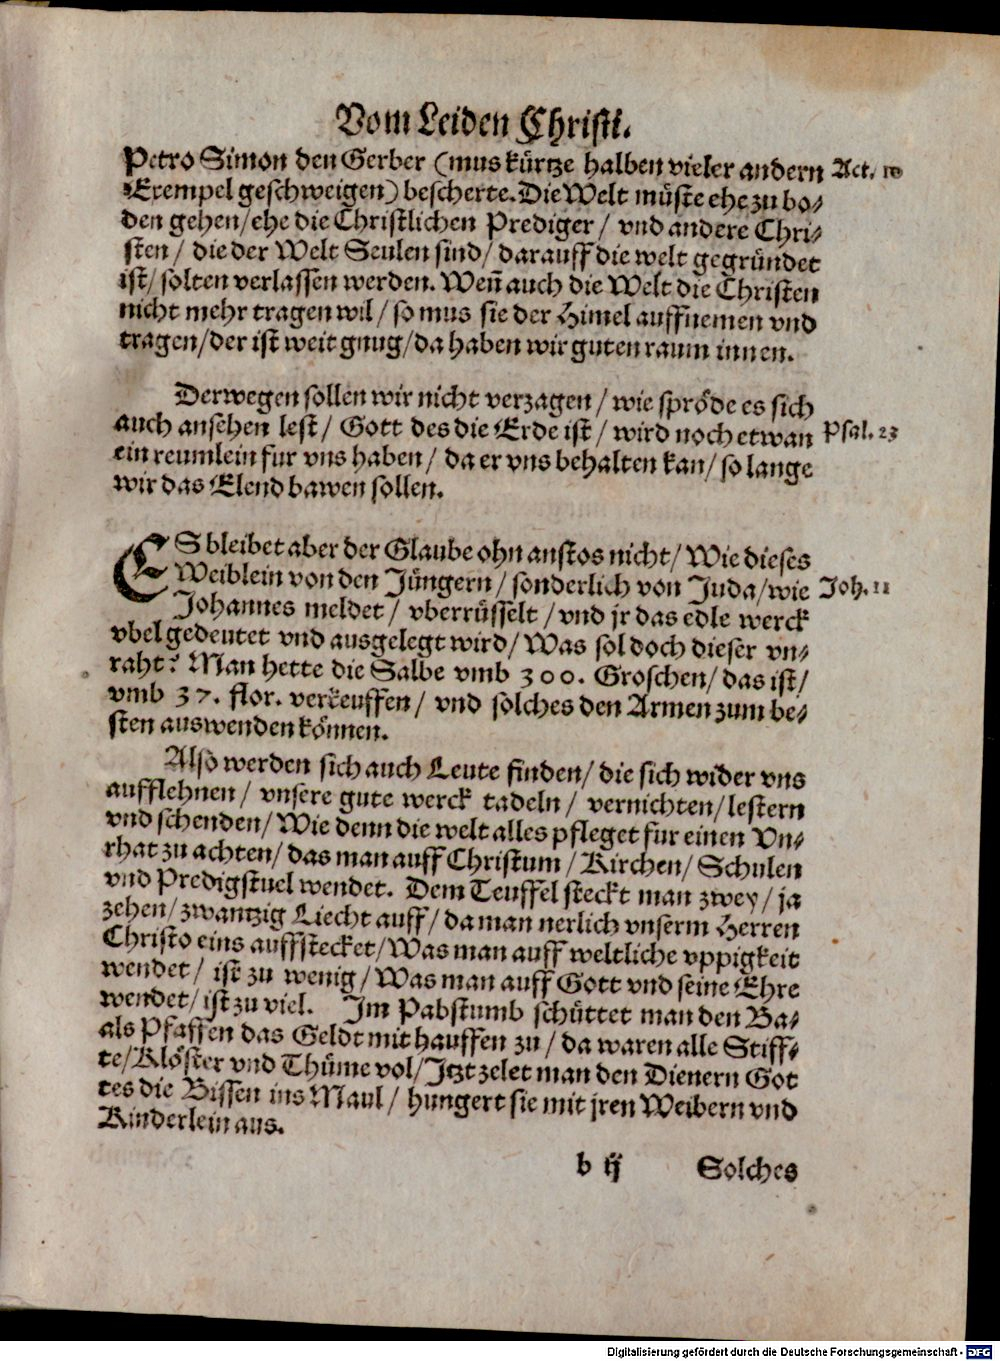 Vom Leiden Christi.
Petro Simon den Gerber (mus kürtze halben vieler andern Act. 10
Exempel geschweigen) bescherte. Die Welt müste ehe zu bo-
den gehen/ ehe die Christlichen Prediger/ vnd andere Chri-
sten/ die der Welt Seulen sind/ darauff die welt gegründet
ist/ solten verlassen werden. Weñ auch die Welt die Christen
nicht mehr tragen wil/ so mus sie der Himel auffnemen vnd
tragen/ der ist weit gnug/ da haben wir guten raum innen.
Derwegen sollen wir nicht verzagen/ wie spröde es sich
auch ansehen lest/ Gott des die Erde ist/ wird noch etwan Psal. 23
ein reumlein fur vns haben/ da er vns behalten kan/ so lange
wir das Elend bawen sollen.
ES bleibet aber der Glaube ohn anstos nicht/ Wie dieses
Weiblein von den Jüngern/ sonderlich von Juda/ wie Joh. 11
Johannes meldet/ vberrüsselt/ vnd jr das edle werck
vbel gedeutet vnd ausgelegt wird/ Was sol doch dieser vn-
raht? Man hette die Salbe vmb 300. Groschen/ das ist/
vmb 37. flor. verkeuffen/ vnd solches den Armen zum be-
sten auswenden können.
Also werden sich auch Leute finden/ die sich wider vns
aufflehnen/ vnsere gute werck tadeln/ vernichten/ lestern
vnd schenden/ Wie denn die welt alles pfleget fur einen Vn-
rhat zu achten/ das man auff Christum/ Kirchen/ Schulen
vnd Predigstuel wendet. Dem Teuffel steckt man zwey/ ja
zehen/ zwantzig Liecht auff/ da man nerlich vnserm Herren
Christo eins auffstecket/ Was man auff weltliche vppigkeit
wendet/ ist zu wenig/ Was man auff Gott vnd seine Ehre
wendet/ ist zu viel. Im Pabstumb schüttet man den Ba-
als Pfaffen das Geldt mit hauffen zu/ da waren alle Stiff-
te/ Klöster vnd Thüme vol/ Jtzt zelet man den Dienern Got
tes die Bissen ins Maul/ hungert sie mit jren Weibern vnd
Kinderlein aus.
b ij Solches
Digitalisierung gefördert durch die Deutsche Forschungsgemeinschaft - DFG